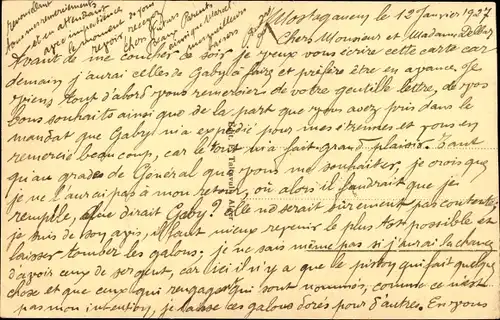 Mostaganem, le 12 Janvier 1937
Chers Monsieur et Madame
Avant de me coucher ce soir je veux vous écrire cette carte car
demain j'aurai celles de Gaby à faire et préfère être en avance. Je
viens tout d'abord vous remercier de votre gentille lettre, de vos
bons souhaits ainsi que de la part que vous avez pris dans le
mandat que Gaby m'a expédié pour mes étrennes et vous en
remercie beaucoup, car le tout m'a fait grand plaisir. Tant
qu'au grade de Général que vous me souhaitez, je crois que
je ne l'aurai pas à mon retour, où alors il faudrait que je
rempile, et que dirait Gaby? elle ne serait sûrement pas contente
je suis de son avis, il vaut mieux revenir le plus tôt possible et
laisser tomber les galons; je ne sais même pas si j'aurai la chance
d'avoir ceux de sergent, car ici il n'y a que le piston qui fait quelque
chose et que ceux qui rengagent qui sont nommés, comme ce n'est
pas mon intention, je laisse ces galons dorés pour d'autres. En vous
renouvelant
tous mes remerciements
et en attendant
avec impatience
le moment de vous
revoir, recevez
Chers
baisers